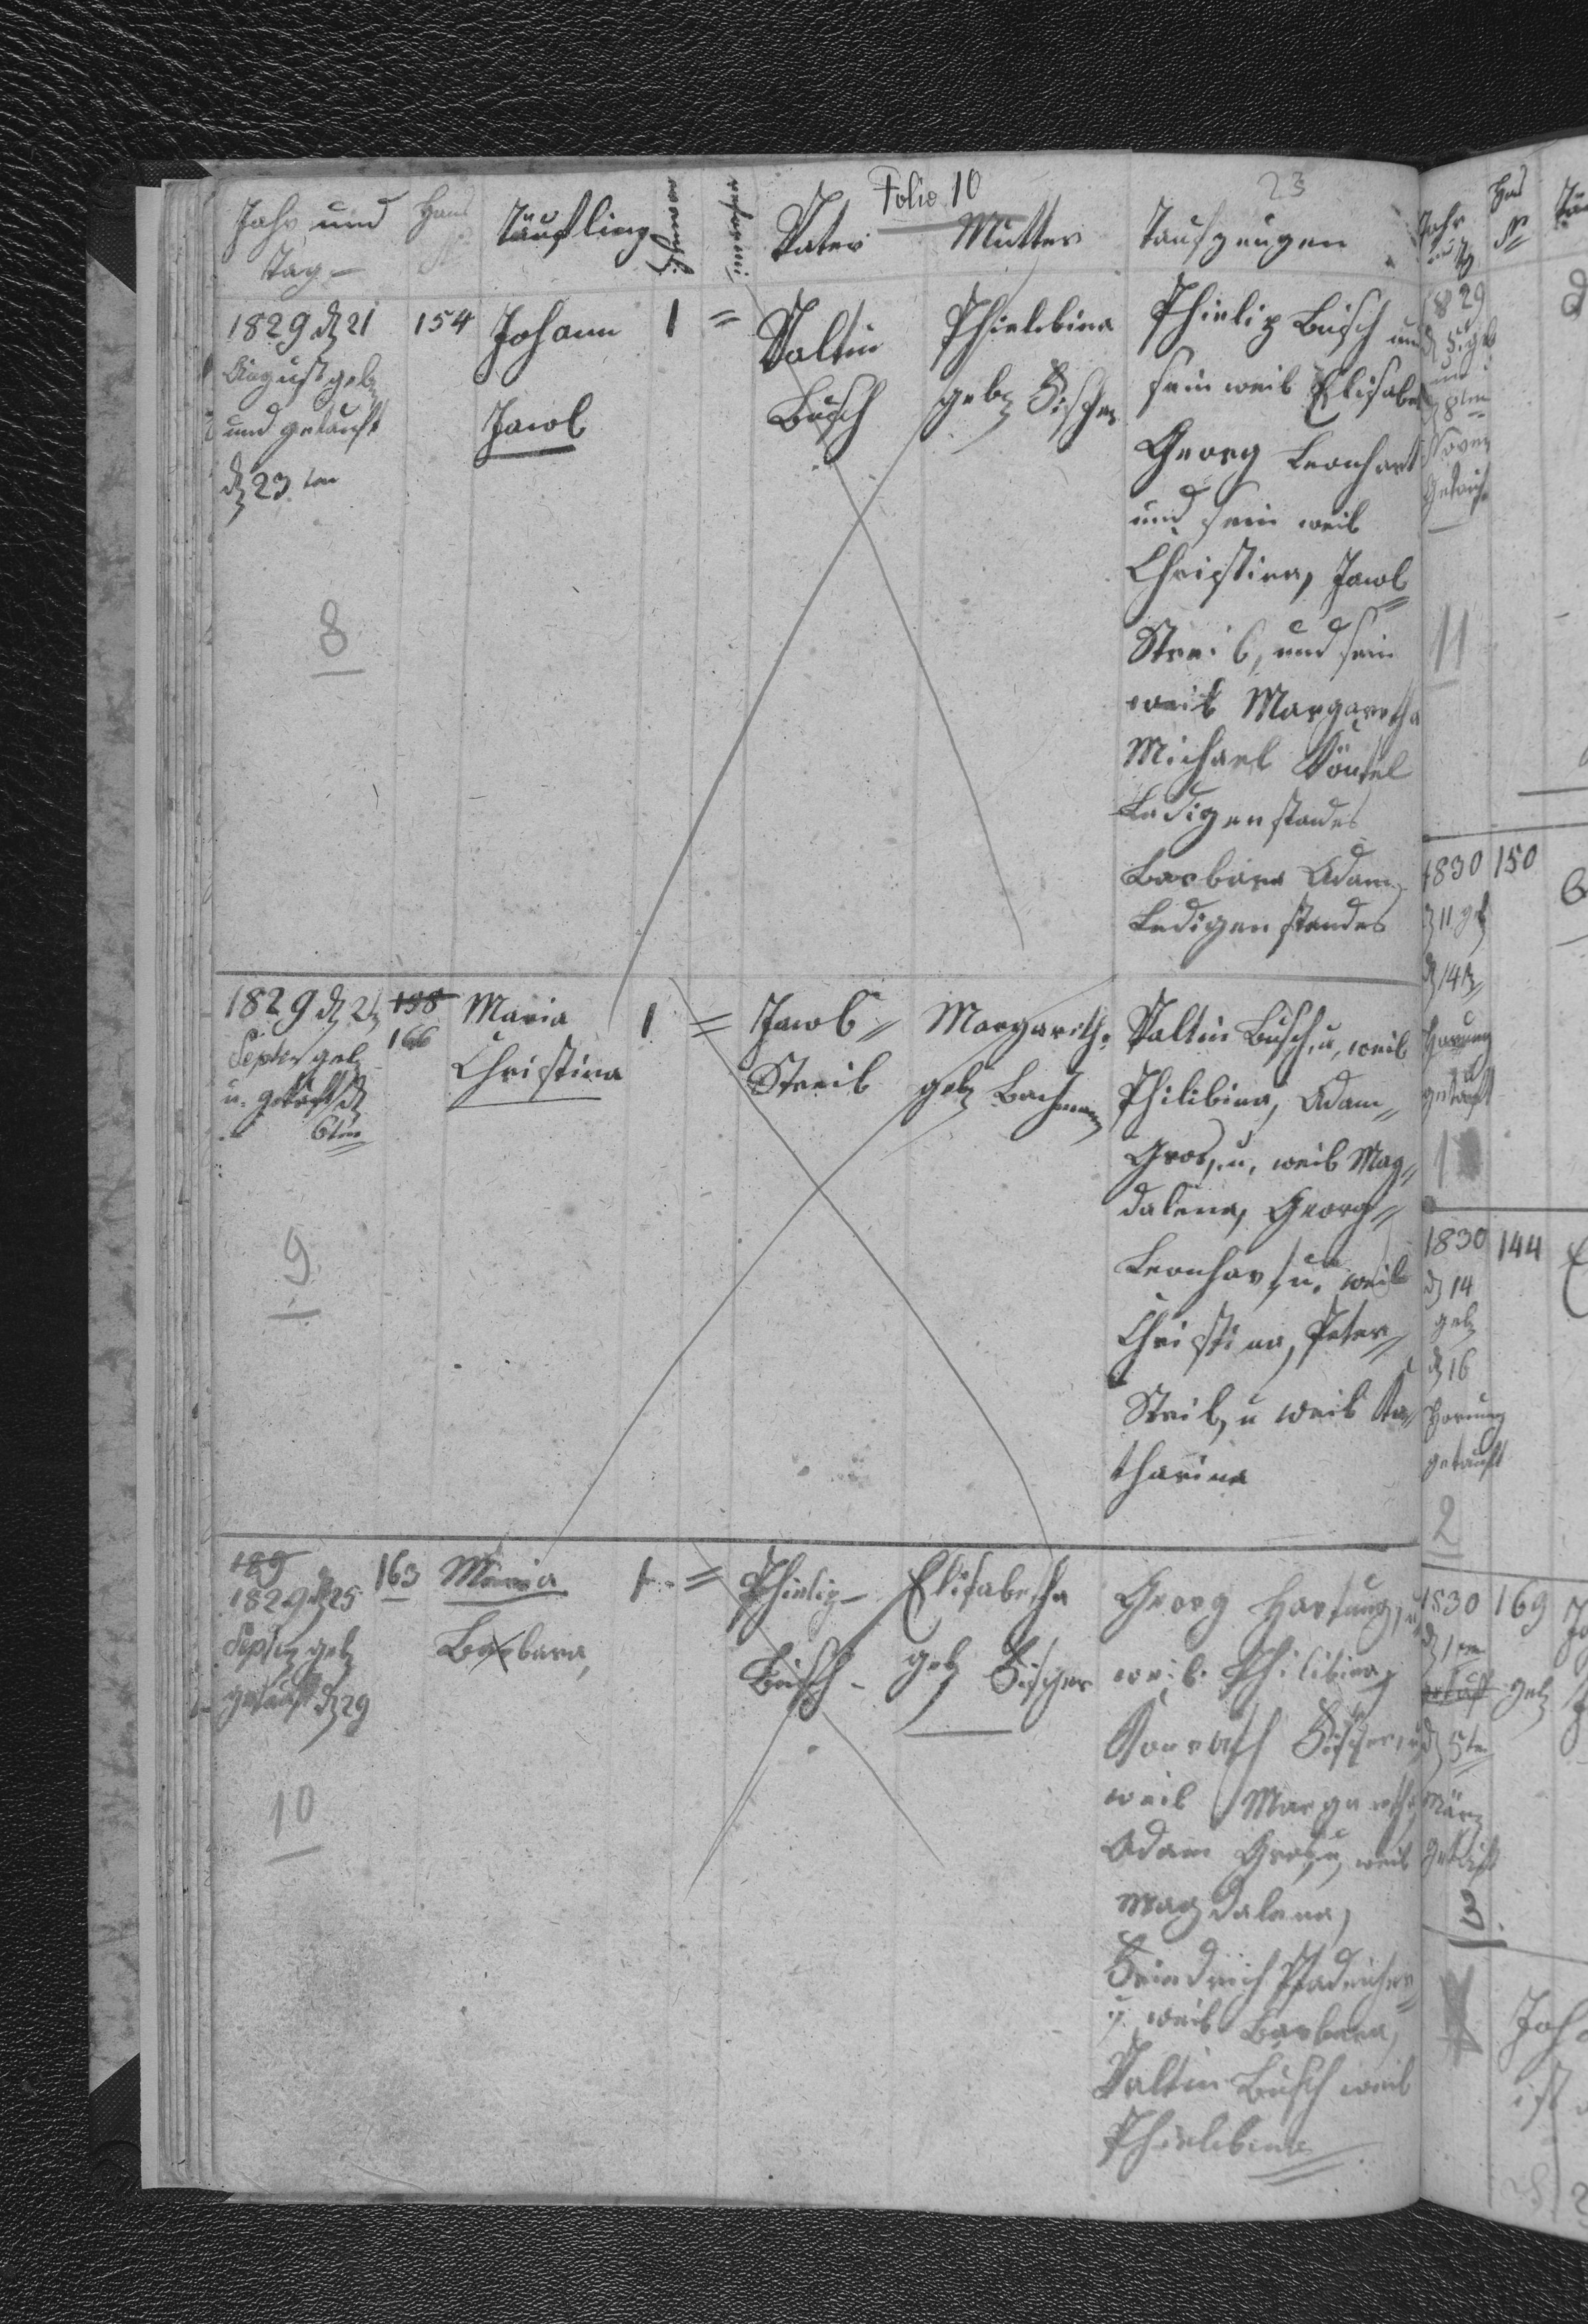 Folio 10
23
Jahr und
Tag
Haus
Täufling
reformi
Vater
Mutter
Taufzeugen
1829 d 21
August geb
und getauft
d 23ten
154
Johann
Jacob
1
=
Valtin
Busch
Phielibina
geb Fischer
Phielip Busch und
sein weib Elisabet
Georg Leonhart
und sein weib
Christina, Jacob
Streib, und sein
weib Margaretha
Michael
Ledigenstandes
Barbara Adam
Ledigen standes
8
1829 d 2
Septer geb
u. getauft d
6ten
158
166
Maria
Christina
1
=
Jacob
Streib
Margareth.
geb Bachmann
Valtin Busch, u, weib
Philibina, Adam
Gros, u, weib Mag
dalena, Georg
Leonhart u. weib
Christina, Peter
Streib, u weib Ka
tharina
9
189
1829 d 25
Septer geb
getauft d 29
163
Maria
Barbara,
1
=
Phielip
Busch
Elisabetha
geb Fischer
Georg Hartung, u
weib Philibina,
Konrath Fischer, u
weib Margaretha
Adam Gros, u, weib
Magdalena,
Friedrich
u weib Barbara,
Valtin Busch weib
Phielibina
10
Jahr
Haus
1829
11
1830
150
d 11 geb
d 14
Hornung
getauft
1
1830
144
d 14
geb
d 16
Hornung
getauft
2
1830
169
d 1ten
getauft
geb
d 5ten
März
getauft
3.
Joh
ist